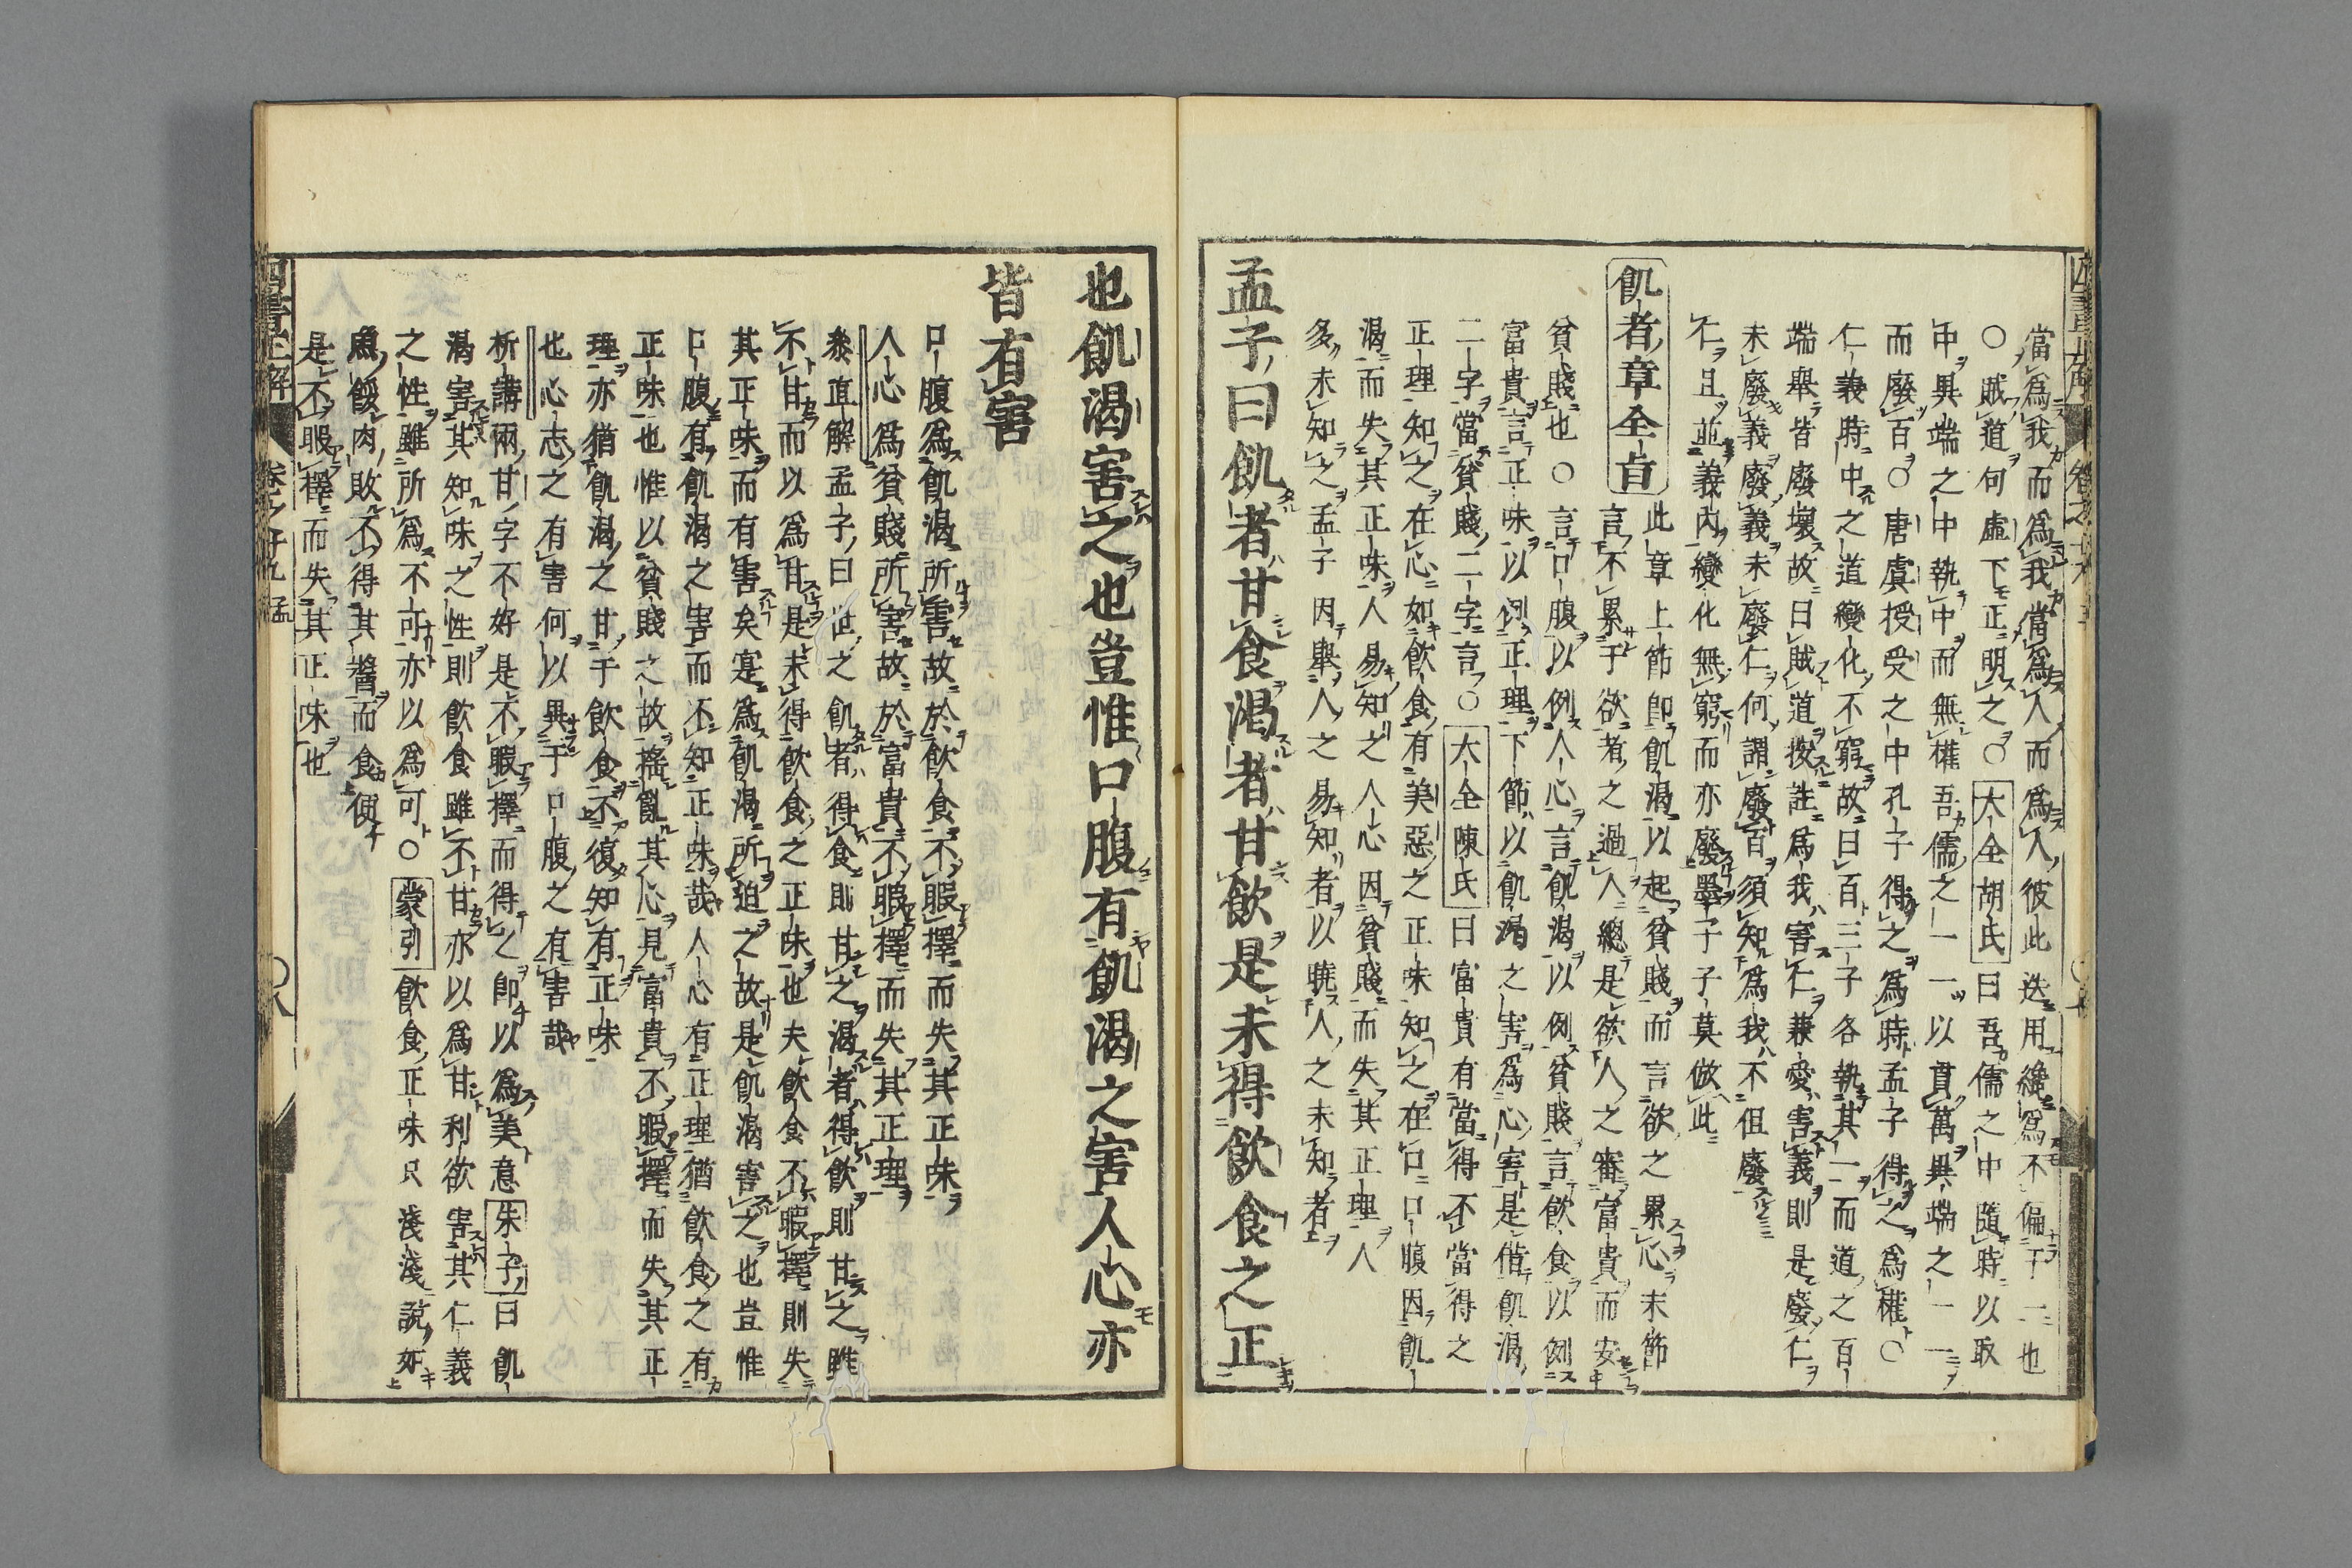 當爲我而爲我當爲人而爲人彼此迭用纔爲不偏于一也
○賊道何處下正明之○大全胡氏曰吾儒之中隨時以取
中異端之中執中而無權吾儒之一一以貫萬異端之一一
而廢百○唐虞授受之中孔子得之爲時孟子得之爲權○
仁義時中之道變化不窮故曰百三子各執其一而道之百
端舉皆廢壞故曰賊道按註爲我害仁兼愛害義則是廢仁
未廢義廢義未廢仁何謂廢百須知爲我不但廢
仁且並義內變化無窮而亦廢墨子子莫做此
飢者章全旨 此章上節即飢渴以起貧賤而言欲之累心末節
言不累于欲者之過人總是欲人之審富貴而安
貧賤也○言口腹以例人心言飢渴以例貧賤言飲食以例
富貴言正味以例正理下節以飢渴之害爲心害是借飢渴
二字當貧賤二字言○大全陳氏曰富貴有當得不當得之
正理知之在心如飲食有美惡之正味知之在口口腹因飢
渴而失其正味人易知之人心因貧賤而失其正理人
多未知之孟子因舉人之易知者以曉人之未知者
孟子曰飢者甘食渴者甘飲是未得飲食之正
也飢渴害之也豈惟口腹有飢渴之害人心亦
皆有害
口腹爲飢渴所害故於飲食不暇擇而失其正味
人心爲貧賤所害故於富貴不暇擇而失其正理
叅直解孟子曰世之飢者得食則甘之渴者得飲則甘之雖
不甘而以爲甘是未得飲食之正味也夫飲食不暇擇則失
其正味而有害矣寔爲飢渴所迫之故是飢渴害之也豈惟
口腹有飢渴之害而不知正味哉人心有正理猶飲食之有
正味也惟以貧賤之故搖亂其心見富貴不暇擇而失其正
理亦猶飢渴之甘于飲食不復知有正味
也心志之有害何以異于口腹之有害哉
析講兩甘字不好是不暇擇而得之即以爲美意朱子曰飢
渴害其知味之性則飲食雖不甘亦以爲甘利欲害其仁義
之性雖所爲不可亦以爲可○蒙引飲食正味只淺淺說如
魚餒肉敗不得其醬而食便
是不暇擇而失其正味也